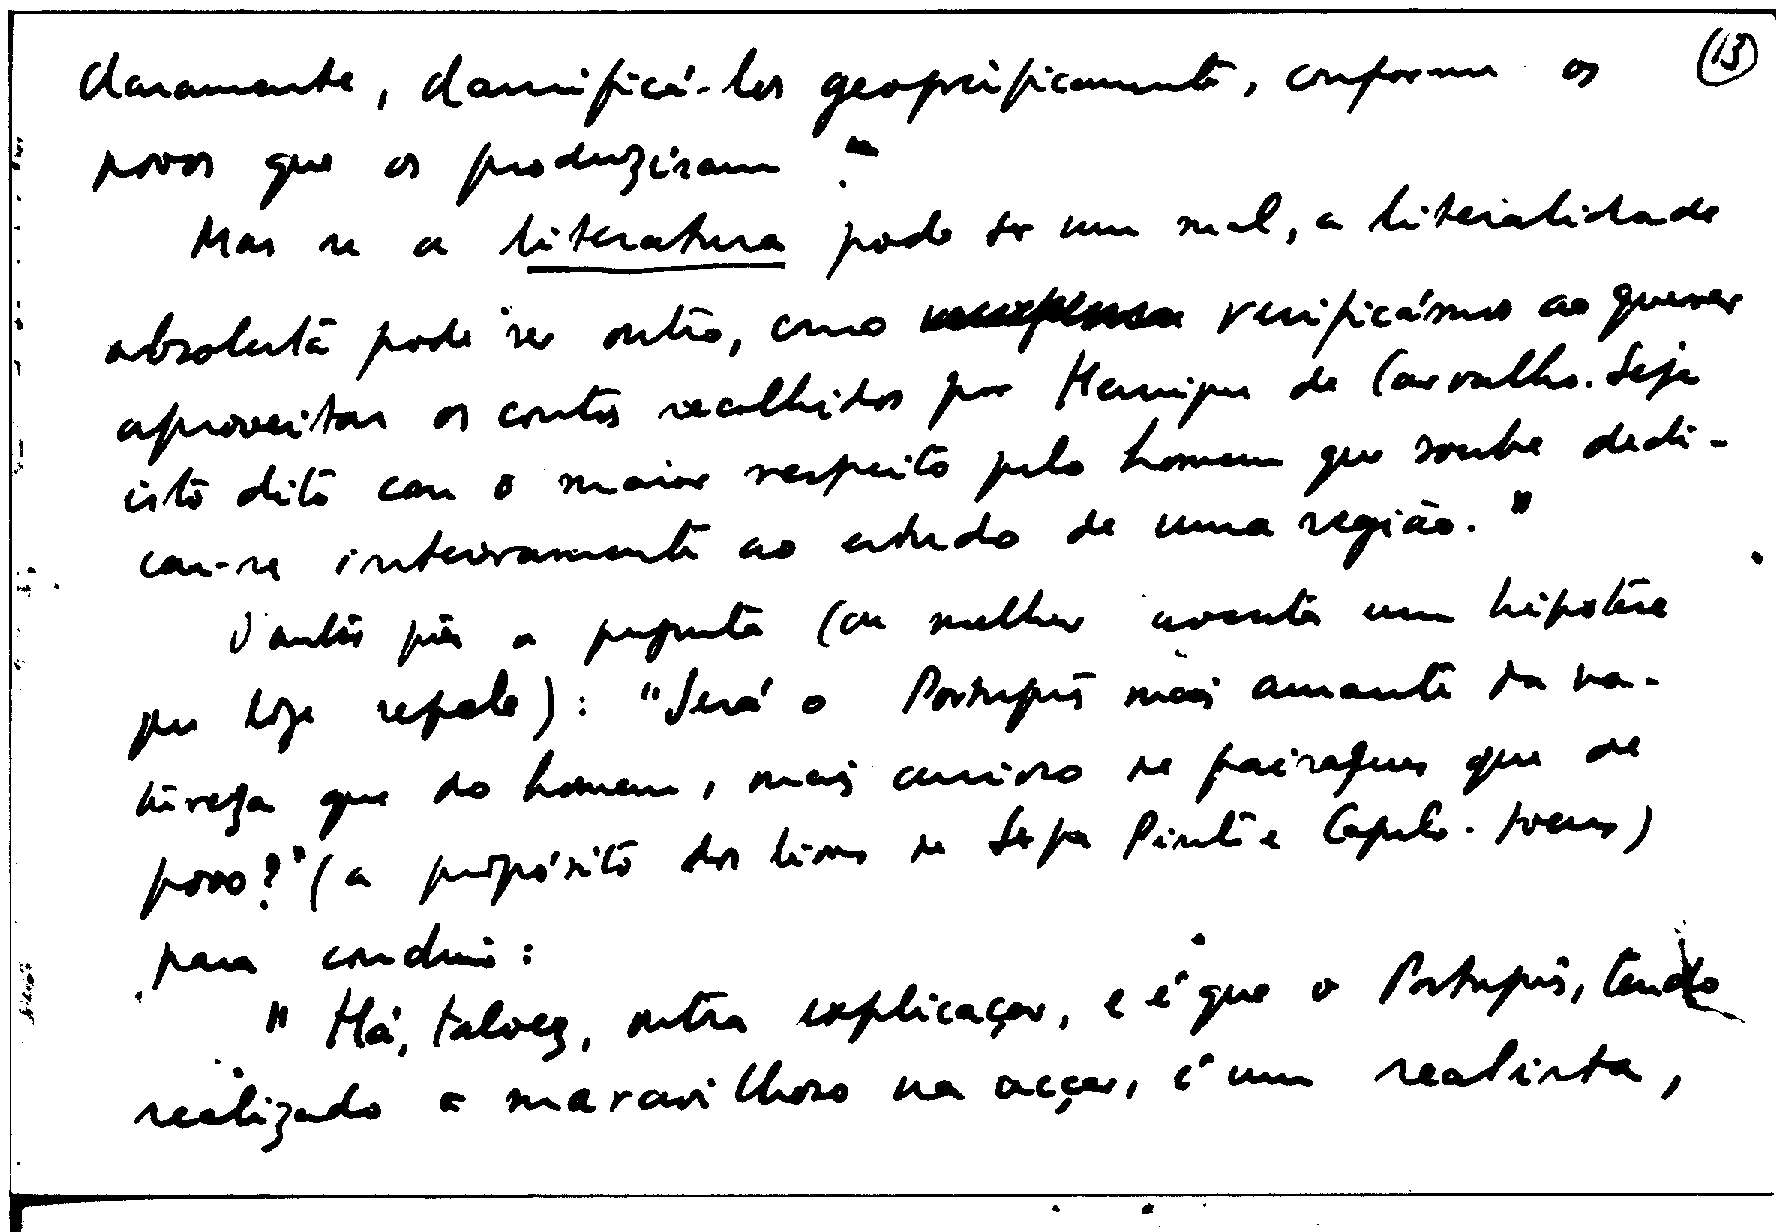 13
claramente, classificá-los geogràficamente, conforme os
povos que os produziram"
Mas se a literatura pode ser um mal, a literalidade
absoluta pode ser outro, como verificámos ao querer
aproveitar os contos recolhidos por Henrique de Carvalho. Seja
isto dito com o maior respeito pelo homem que soube dedi-
car-se inteiramente ao estudo de uma região."
Santos põe a pergunta (ou melhor aventa um hipótese
que hoje repele): "Será o Português mais amante da na-
tureza que do homem, mais curioso de paisagens que de
povo?" (a propósito dos livros de Serpa Pinto e Capelo-Ivens)
para concluir:
"Há, talvez, outra explicação, e é que o Português, tendo
realizado o maravilhoso na acção, é um realista,